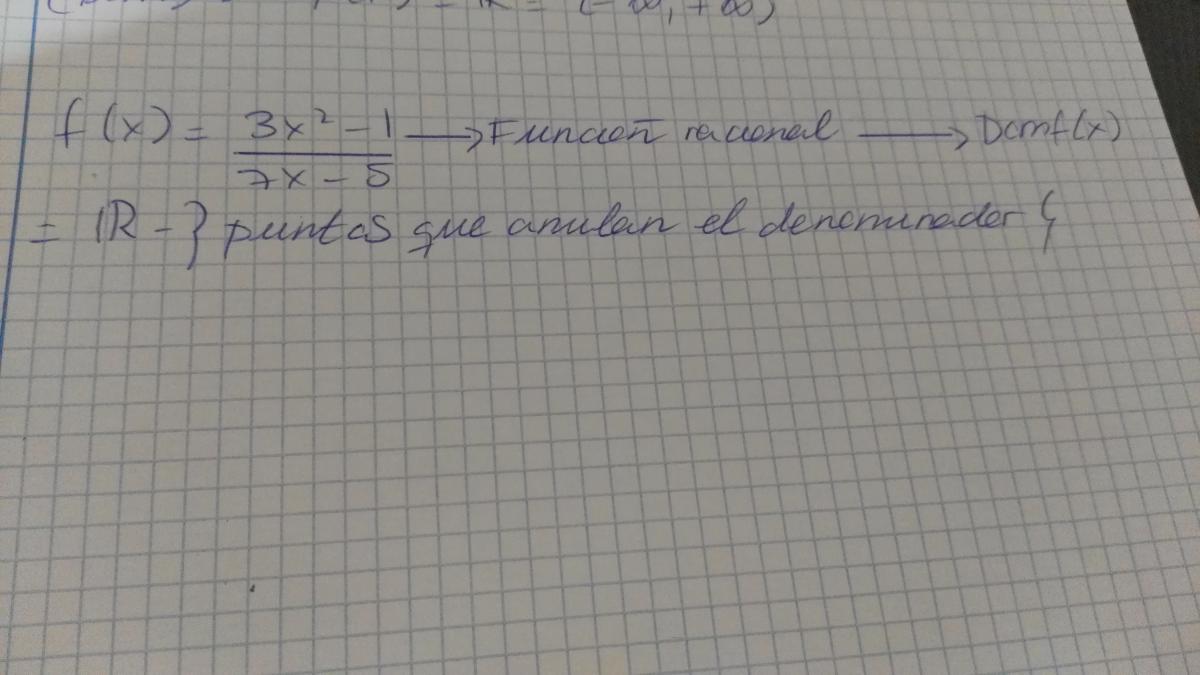 = ℝ = (-∞, +∞)
f(x) = (3x² - 1)/(7x - 5) → Función racional → Dom f(x)
= ℝ - } puntos que anulan el denominador {